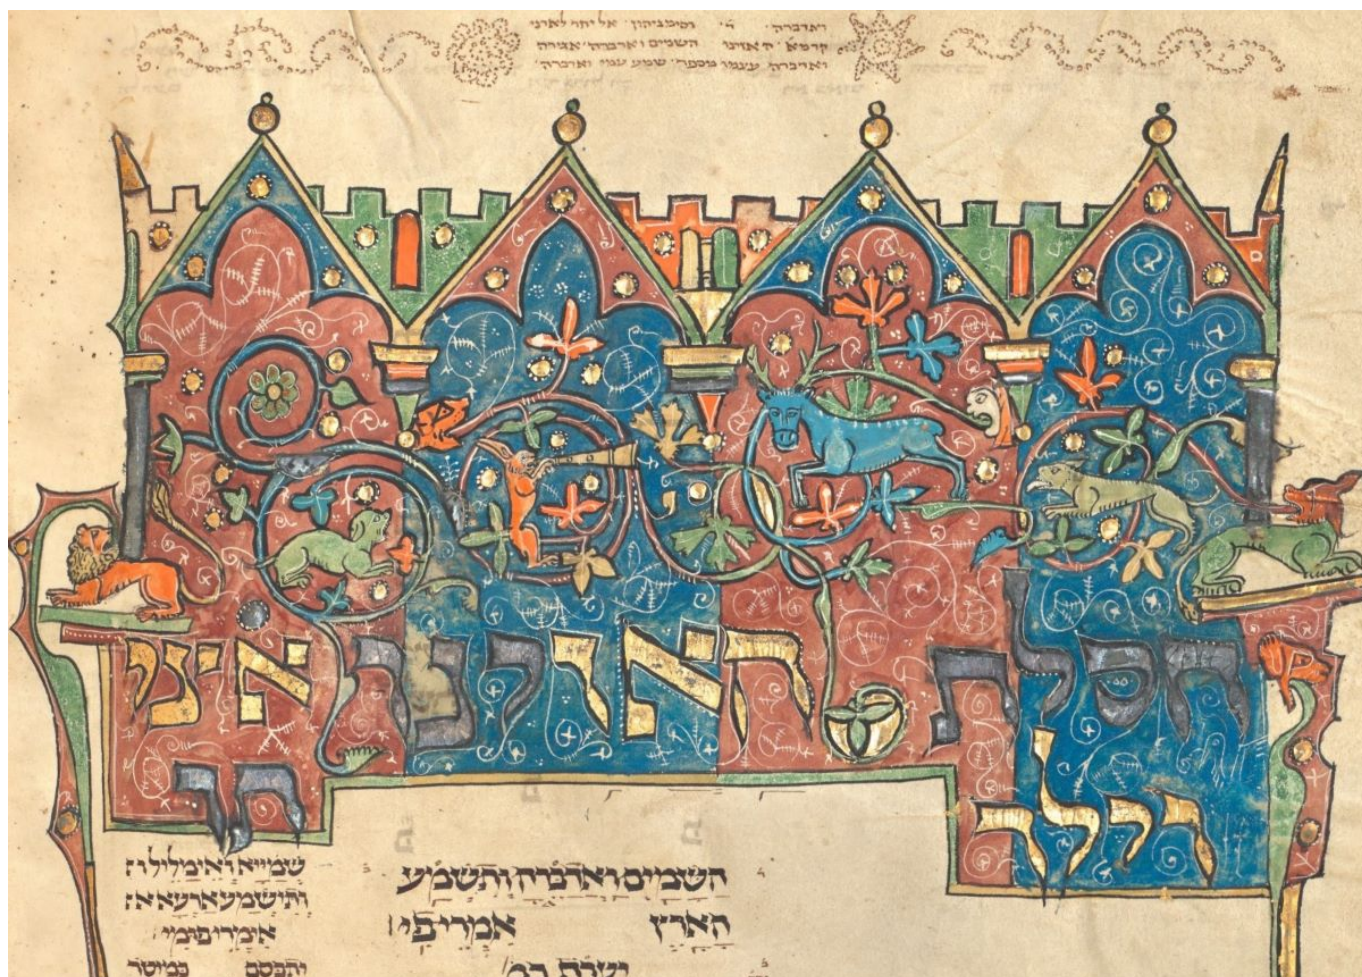 ואדברה ד וסימניהון אל יחר לאדני
קדמא האזינו השמים ואדברה
ואדברה עצמו מספר שמע עמי ואדברה
חסלת
וילך
האזינו
השמים ואדברה ותשמע
הארץ אמרי פי
אצי
תו
שמייא ואימליל
ותישמע ארעא
אימרי פומי
כמיטר